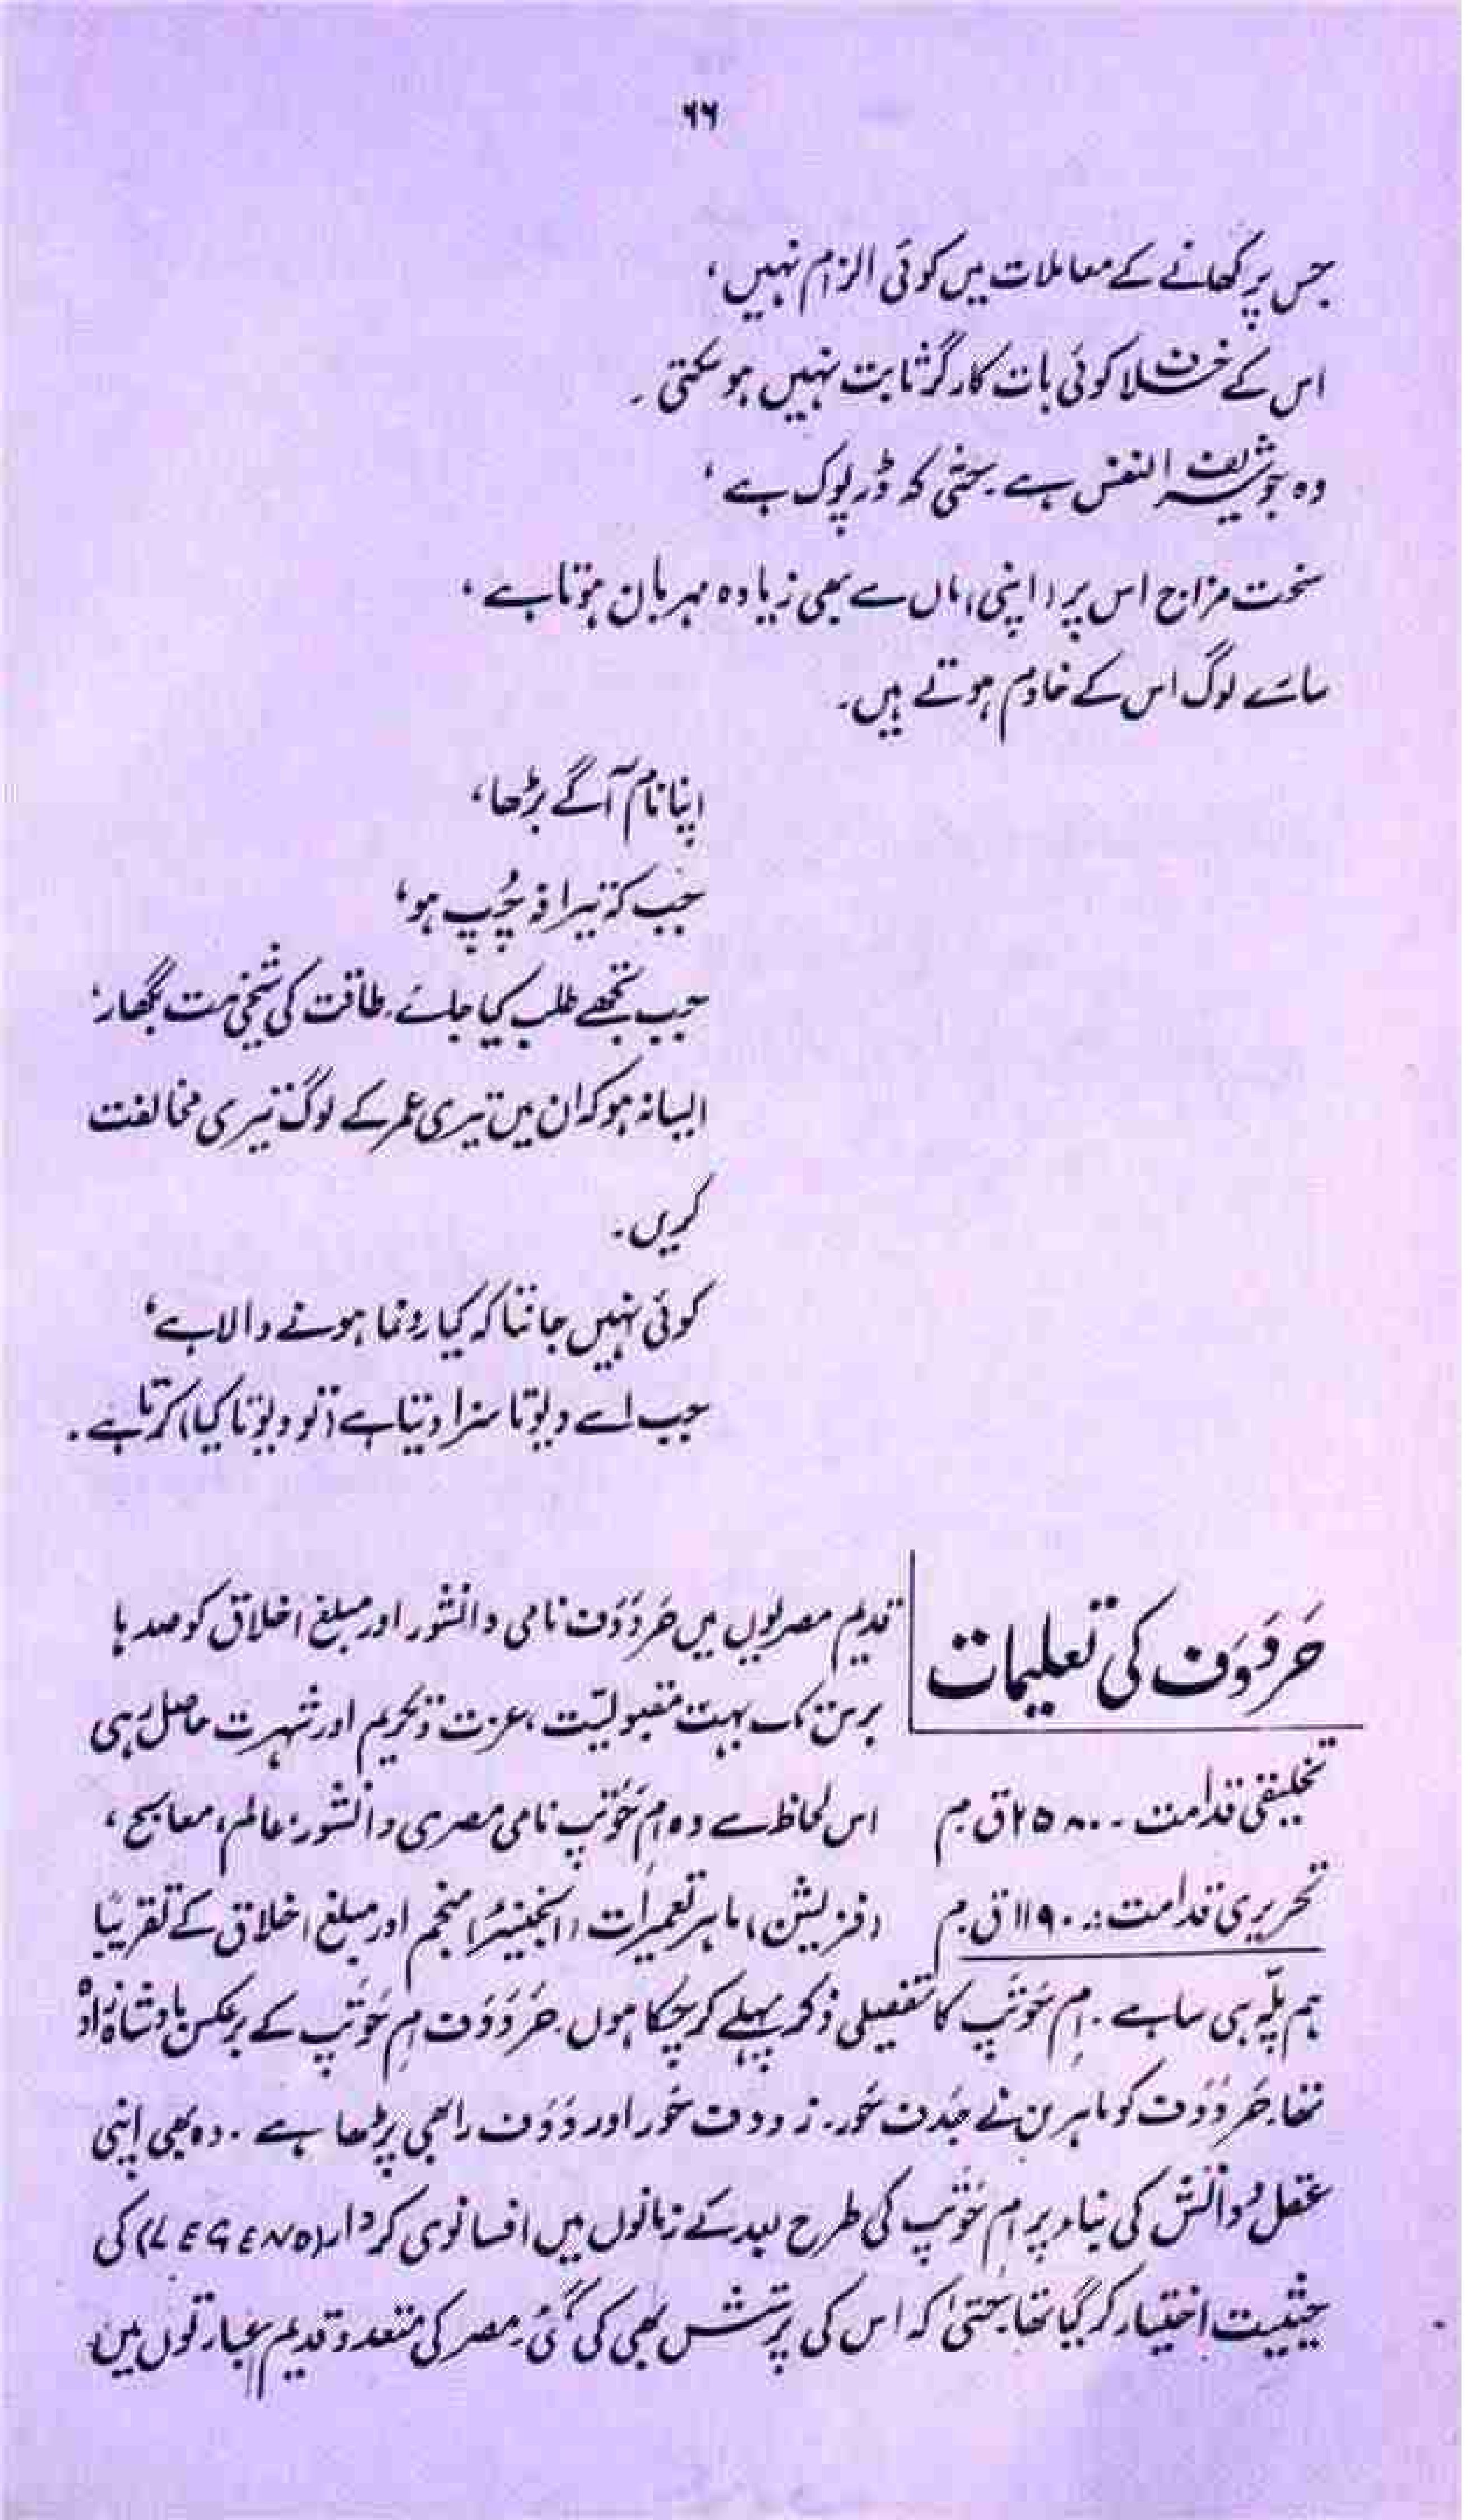 ۶۶
جس پر کھانے کے معاملات میں کوئی الزام نہیں،
اس کے خلاف کوئی بات کارگر ثابت نہیں ہو سکتی۔
وہ جو شریف النفس ہے۔ حتیٰ کہ ڈرپوک ہے،
سخت مزاج اس پر (اپنی) ماں سے بھی زیادہ مہربان ہوتا ہے،
سارے لوگ اس کے خادم ہوتے ہیں۔
اپنا نام آگے بڑھا،
جب کہ تیرا منہ چُپ ہو،
جب تجھے طلب کیا جائے۔ طاقت کی شیخی مت بگھار،
ایسا نہ ہو کہ ان میں تیری عمر کے لوگ تیری مخالفت
کریں۔
کوئی نہیں جانتا کہ کیا رونما ہونے والا ہے،
جب اسے دیوتا سزا دیتا ہے (تو دیوتا کیا) کرتا ہے۔
حَردَوَف کی تعلیمات
قدیم مصریوں میں حَردَوَف نامی دانشور اور مبلغ اخلاق کو صدہا
برس تک بہت مقبولیّت، عزت و تکریم اور شہرت حاصل رہی
تخلیقی قدامت ۔۔ ۲۵۸۰ ق م
اس لحاظ سے وہ اِم حَوتَپ نامی مصری دانشور، عالم، معالج،
تحریری قدامت :۔ ۱۱۹۰ ق م
(فزیشن)، ماہرِ تعمیرات (انجینیئر) منجم اور مبلغ اخلاق کے تقریباً
ہم پلّہ ہی سا ہے۔ اِم حَوتَپ کا تفصیلی ذکر پہلے کر چکا ہوں۔ حَردَوَف اِم حَوتَپ کے برعکس بادشاہ زادہ
تھا۔ حَردَوَف کو ماہرین نے جَدف حَور۔ زودف حَور اور دَوَف را بھی پڑھا ہے۔ وہ بھی اپنی
عقل و دانش کی بنیاد پر اِم حَوتَپ کی طرح بعد کے زمانوں میں افسانوی کردار (LEGEND) کی
حیثیت اختیار کر گیا تھا۔ حتیٰ کہ اس کی پرستش بھی کی گئی۔ مصر کی متعدد قدیم عبارتوں میں